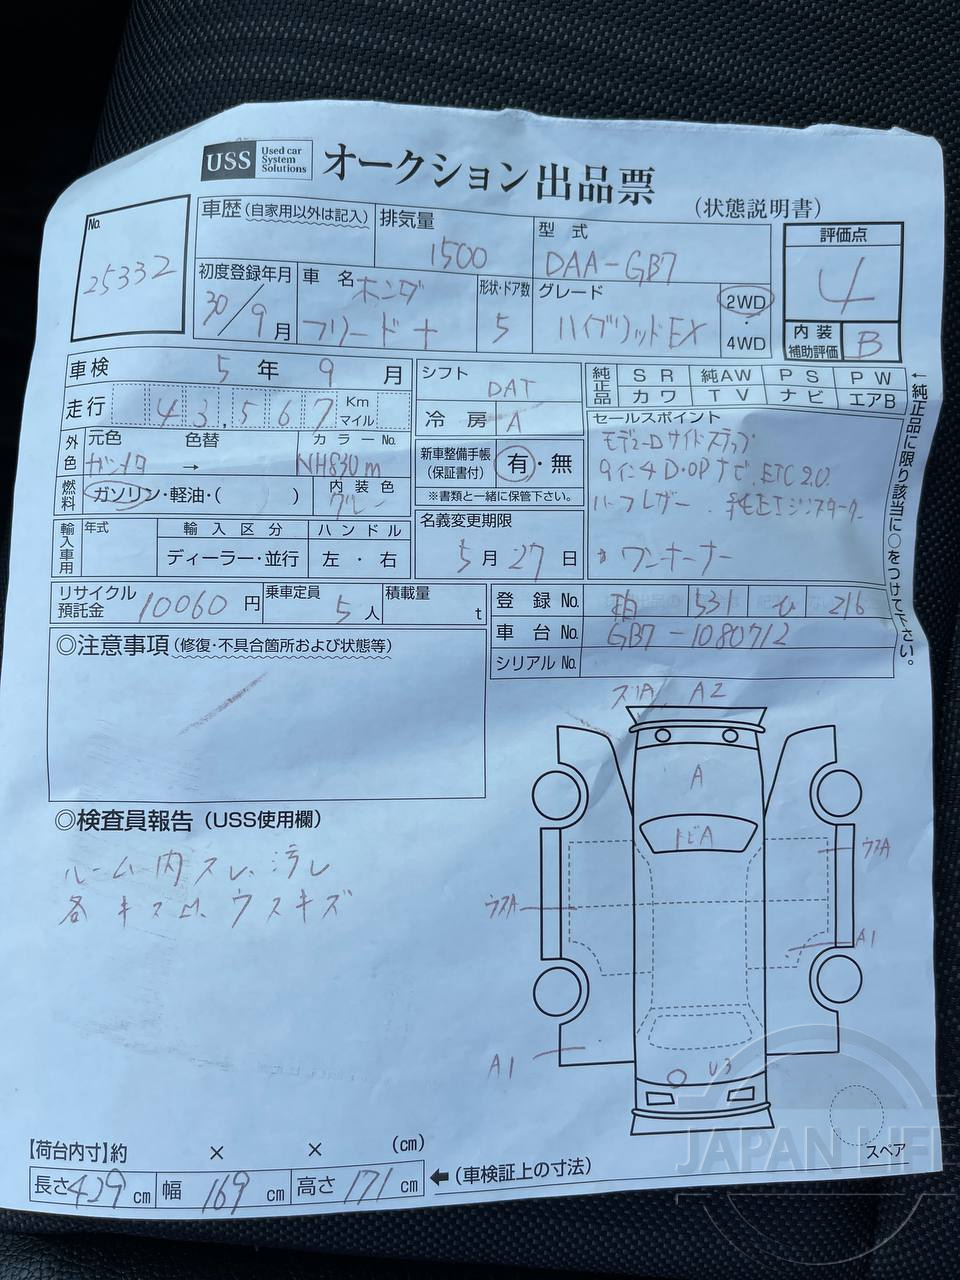 USS Used car System Solutions オークション出品票 (状態説明書)
No. 25332
車歴(自家用以外は記入)
排気量 1500
型式 DAA-GB7
評価点 4
内装補助評価 B
初度登録年月 30/9月
車名 ホンダ フリード+
形状・ドア数 5
グレード ハイブリッドEX
2WD・4WD
車検 5年9月
走行 43,567 Km マイル
シフト DAT
冷房 A
純正品 SR 純AW PS PW
カワ TV ナビ エアB
←純正品に限り該当に○をつけて下さい。
外色 元色 色替 カラーNo.
ガンメタ → NH830m
燃料 ガソリン・軽油・( )
内装色 グレー
新車整備手帳(保証書付) 有・無
※書類と一緒に保管下さい。
セールスポイント
モデューロサイドステップ
9インチD・OPナビ、ETC2.0
ハーフレザー、純正エンジンスターター
ワンオーナー
輸入車用 年式 輸入区分 ハンドル
ディーラー・並行 左・右
名義変更期限 5月27日
リサイクル預託金 10060円
乗車定員 5人
積載量 t
登録No. 柏 531 ひ 216
車台No. GB7-1080712
シリアルNo.
◎注意事項(修復・不具合箇所および状態等)
◎検査員報告(USS使用欄)
ルーム内スレ、汚レ
各キズ凹、ウスキズ
ズリA A2
A
トビA
ウスA
ウスA
A1
A1
U3
スペア
【荷台内寸】約 × × (cm)
長さ429cm 幅169cm 高さ171cm ←(車検証上の寸法)
JAPAN LIFE